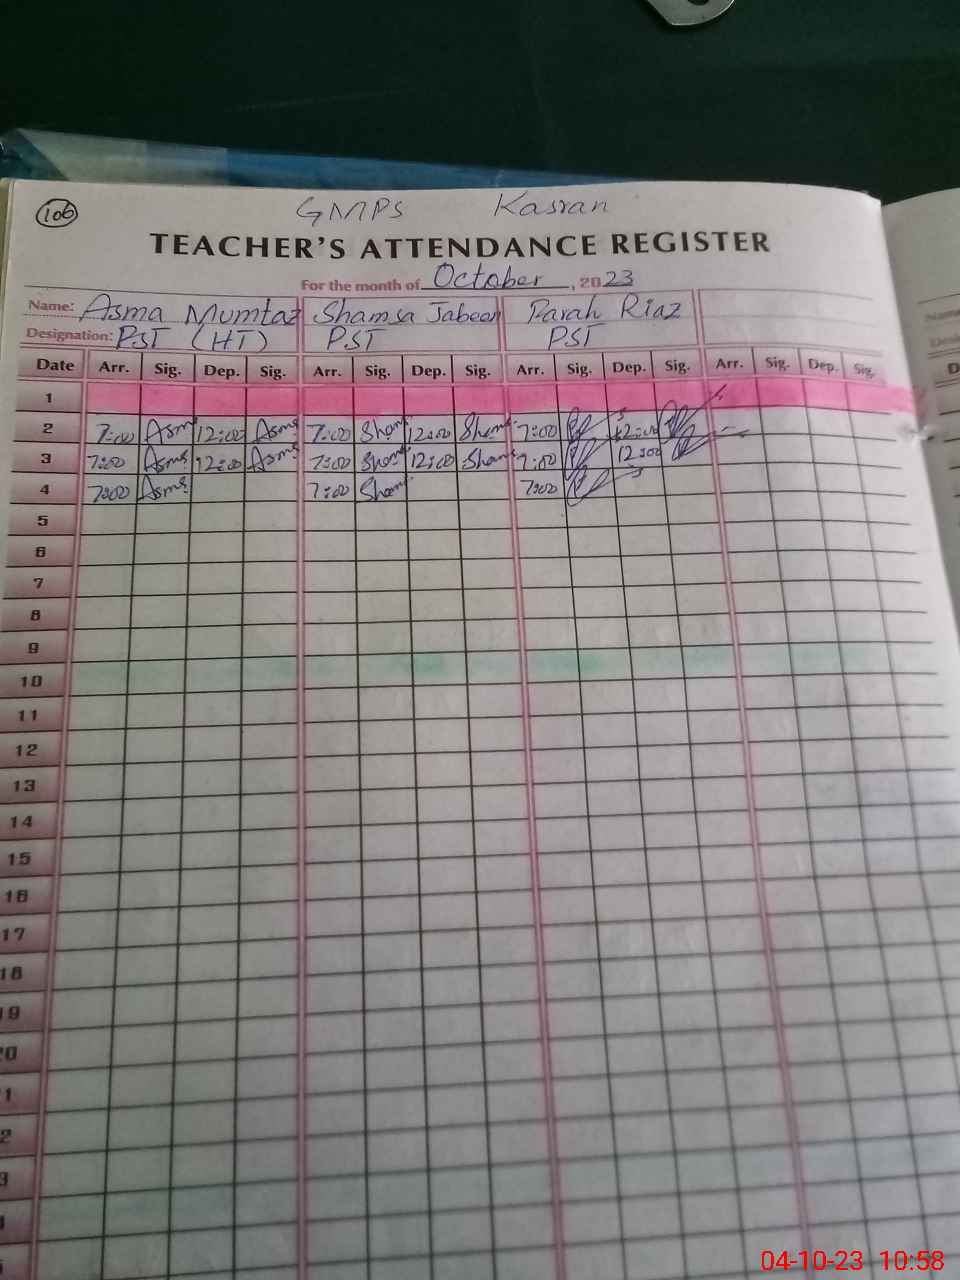 106
GMPS Kasran
TEACHER'S ATTENDANCE REGISTER
For the month of October, 2023
Name: Asma Mumtaz Shamsa Jabeen Farah Riaz
Designation: PST (HT) PST PST
Date Arr. Sig. Dep. Sig. Arr. Sig. Dep. Sig. Arr. Sig. Dep. Sig. Arr. Sig. Dep. Sig.
1
2 7:00 Asma 12:00 Asma 7:00 Sham 12:00 Sham 7:00 12:00
3 7:00 Asma 12:00 Asma 7:00 Sham 12:00 Sham 7:00 12:00
4 7:00 Asma 7:00 Sham 7:00
5
6
7
8
9
10
11
12
13
14
15
16
17
18
19
20
1
2
3
04-10-23 10:58